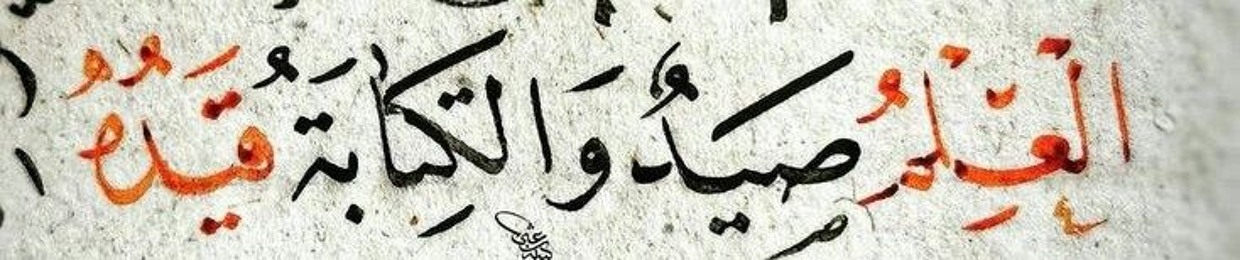 الْعِلْمُ صَيْدٌ وَالْكِتَابَةُ قَيْدُهُ